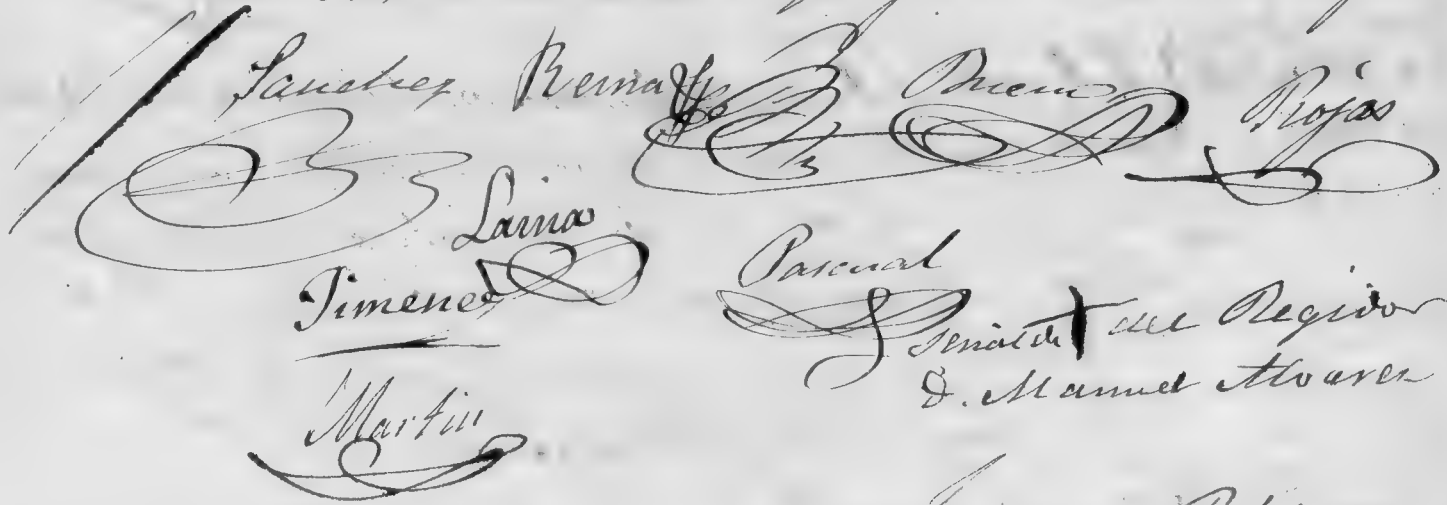 Sanchez Reina Bueno Rojas
Lama
Jimenez Pascual
Señal de + del Regidor
D. Manuel Alvarez
Martin